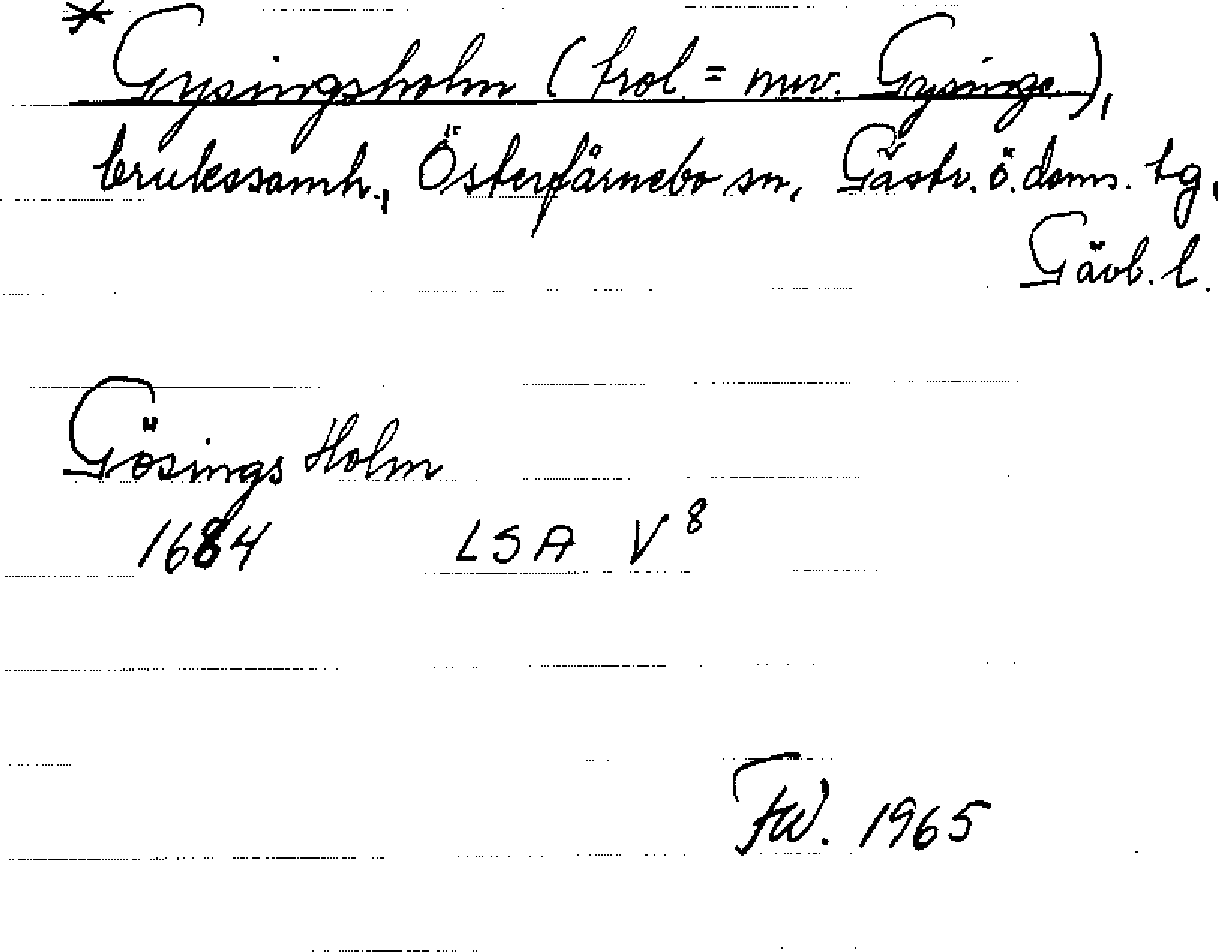 * Gysingsholm (trol. = nuv. Gysinge),
brukssamh., Österfärnebo sn, Gästr. ö. doms. tg,
Gävl. l.
Gösings Holm
1684 LSA V 8
FW. 1965